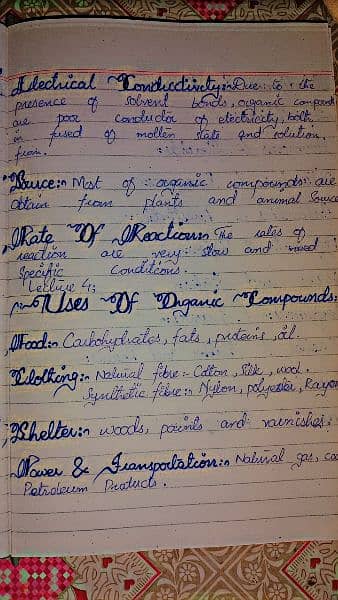 Electrical Conductivity:- Due to the
presence of solvent bonds, organic compounds
are poor conductor of electricity, both
in fused of molten state and solution.
from.
Source:- Most of organic compounds are
obtain from plants and animal Source
Rate Of Reaction:- The rates of
reaction are very slow and
Specific Conditions.
Lecture 4:
Uses Of Organic Compounds:
Food:- Carbohydrates, fats, proteins, oil.
Clothing:- Natural fibre:- Cotton, Silk, wool.
Synthetic fibre:- Nylon, polyester, Rayon
Shelter:- woods, paints and varnishes.
Power & Transportation:- Natural gas,
Petroleum Products.